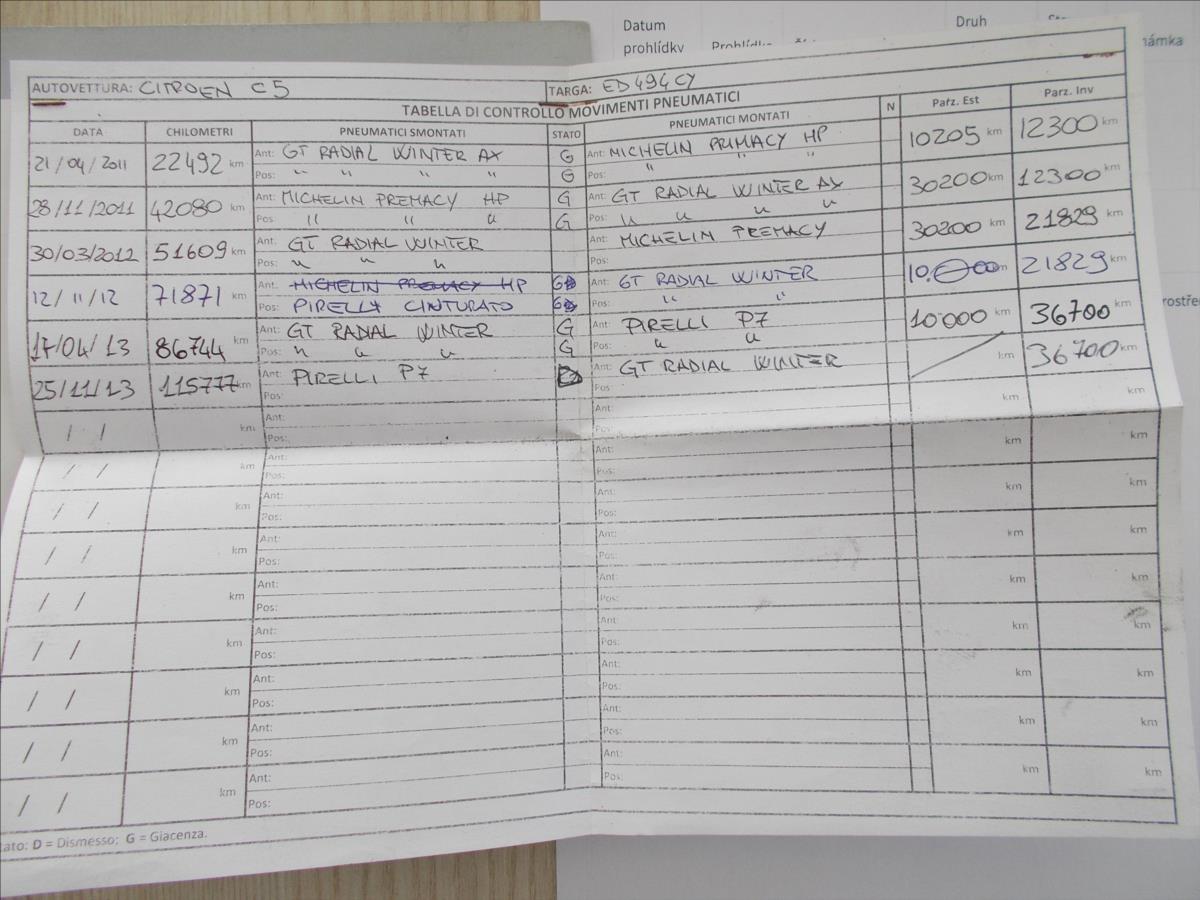 Datum
Druh
prohlídky
AUTOVETTURA: CITROEN C5 TARGA: ED494CY
TABELLA DI CONTROLLO MOVIMENTI PNEUMATICI
DATA CHILOMETRI PNEUMATICI SMONTATI STATO PNEUMATICI MONTATI N Parz. Est Parz. Inv
21/04/2011 22492 km Ant: GT RADIAL WINTER AX G Ant: MICHELIN PRIMACY HP 10205 km 12300 km
Pos: " " " " G Pos: " " "
28/11/2011 42080 km Ant: MICHELIN PREMACY HP G Ant: GT RADIAL WINTER AX 30200 km 12300 km
Pos: " " " G Pos: " " " "
30/03/2012 51609 km Ant: GT RADIAL WINTER Ant: MICHELIN PREMACY 30200 km 21829 km
Pos: " " " Pos:
12/11/12 71871 km Ant: MICHELIN PREMACY HP G Ant: GT RADIAL WINTER 21829 km
Pos: PIRELLY CINTURATO G Pos: " "
17/04/13 86744 km Ant: GT RADIAL WINTER G Ant: PIRELLI P7 10000 km 36700 km
Pos: " " " G Pos: " "
25/11/13 115777 km Ant: PIRELLI P7 Ant: GT RADIAL WINTER km 36700 km
Pos: Pos:
/ / km Ant: Ant: km km
Pos: Pos:
/ / km Ant: Ant: km km
Pos: Pos:
/ / km Ant: Ant: km km
Pos: Pos:
/ / km Ant: Ant: km km
Pos: Pos:
/ / km Ant: Ant: km km
Pos: Pos:
/ / km Ant: Ant: km km
Pos: Pos:
/ / km Ant: Ant: km km
Pos: Pos:
/ / km Ant: Ant: km km
Pos: Pos:
/ / km Ant: Ant: km km
Pos: Pos:
D = Dismesso; G = Giacenza.